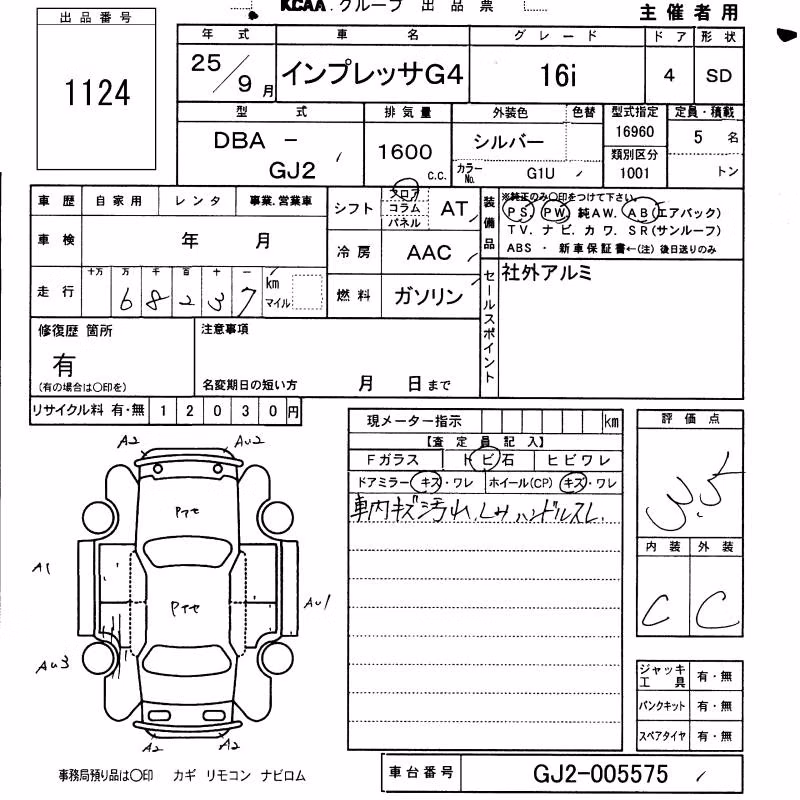 KCAA.グループ 出品票
主催者用
出品番号
1124
年式 車名 グレード ドア 形状
25/9月 インプレッサG4 16i 4 SD
型式 排気量 外装色 色替 型式指定 定員・積載
DBA - GJ2 1600 c.c. シルバー 16960 5 名
カラーNo. G1U 類別区分 1001 トン
車歴 自家用 レンタ 事業.営業車
車検 年 月
走行 十万 万 千 百 十 一
6 8 2 3 7 km マイル
シフト フロア コラム パネル AT
冷房 AAC
燃料 ガソリン
装備品
※純正のみ○印をつけて下さい。
PS PW 純AW. AB(エアバック)
TV. ナビ. カワ. SR(サンルーフ)
ABS ・ 新車保証書←(注)後日送りのみ
セールスポイント
社外アルミ
修復歴 箇所
有
(有の場合は○印を)
注意事項
名変期日の短い方 月 日まで
リサイクル料 有・無 1 2 0 3 0 円
現メーター指示 km
【査定員記入】
Fガラス トビ石 ヒビワレ
ドアミラー キズ・ワレ ホイール(CP) キズ・ワレ
車内キズ汚れ.シミ ハンドルスレ.
評価点
3.5
内装 外装
C C
ジャッキ工具 有・無
パンクキット 有・無
スペアタイヤ 有・無
A2 AU2
Pイセ
A1
Pイセ
AU1
AU3
A2 A2
事務局預り品は○印 カギ リモコン ナビロム
車台番号 GJ2-005575